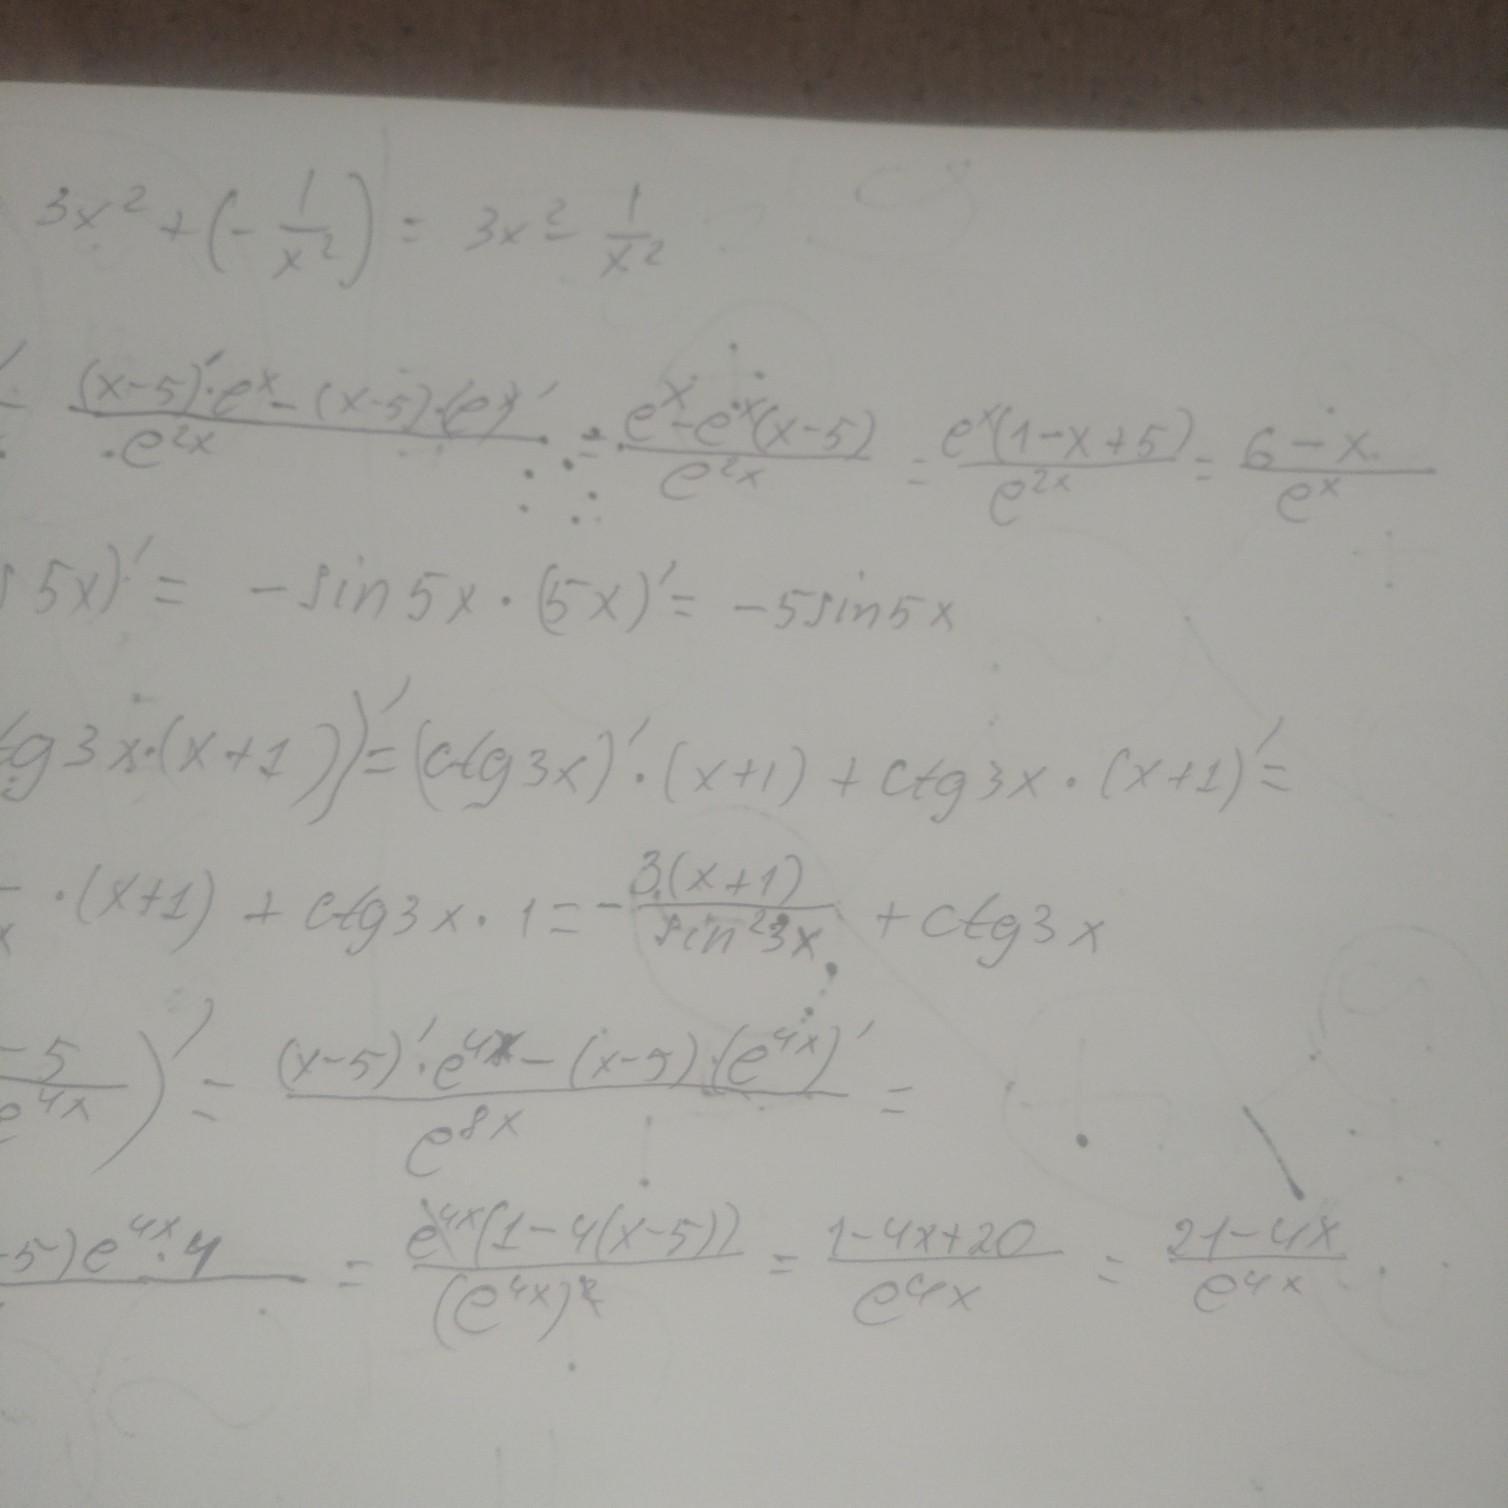 3x² + (- 1/x²) = 3x² - 1/x²
(x-5)'·eˣ - (x-5)·(eˣ)' / e²ˣ = eˣ - eˣ(x-5) / e²ˣ = eˣ(1-x+5) / e²ˣ = 6-x / eˣ
5x)' = -sin5x · (5x)' = -5sin5x
tg3x·(x+1))' = (ctg3x)' · (x+1) + ctg3x · (x+1)' =
·(x+1) + ctg3x · 1 = - 3(x+1) / sin²3x + ctg3x
-5 / e⁴ˣ )' = (x-5)'·e⁴ˣ - (x-5)·(e⁴ˣ)' / e⁸ˣ =
-5)e⁴ˣ·4 = e⁴ˣ(1-4(x-5)) / (e⁴ˣ)² = 1-4x+20 / e⁴ˣ = 21-4x / e⁴ˣ